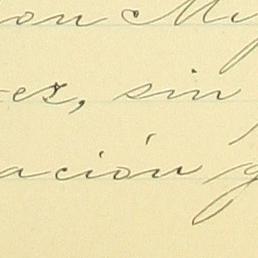 on M
ez, sin
ación